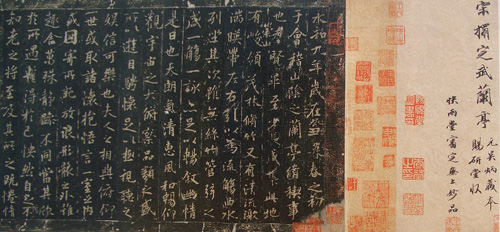 宋搨定武蘭亭
元吳炳藏本
賜研堂收
快雨堂審定無上妙品
永和九年歲在癸丑暮春之初
于會稽山陰之蘭亭脩稧事
也羣賢畢至少長咸集此地
有領茂林脩竹又有清流激
湍暎帶左右引以為流觴曲水
列坐其次雖無絲竹管弦之
盛一觴一詠亦足以暢敘幽情
是日也天朗氣清惠風和暢仰
觀宇宙之大俯察品類之盛
所以遊目騁懷足以極視聽之
娛信可樂也夫人之相與俯仰
一世或取諸懷抱悟言一室之內
或因寄所託放浪形骸之外雖
趣舍萬殊靜躁不同當其欣
於所遇暫得於己怏然自足不
知老之將至及其所之既惓情